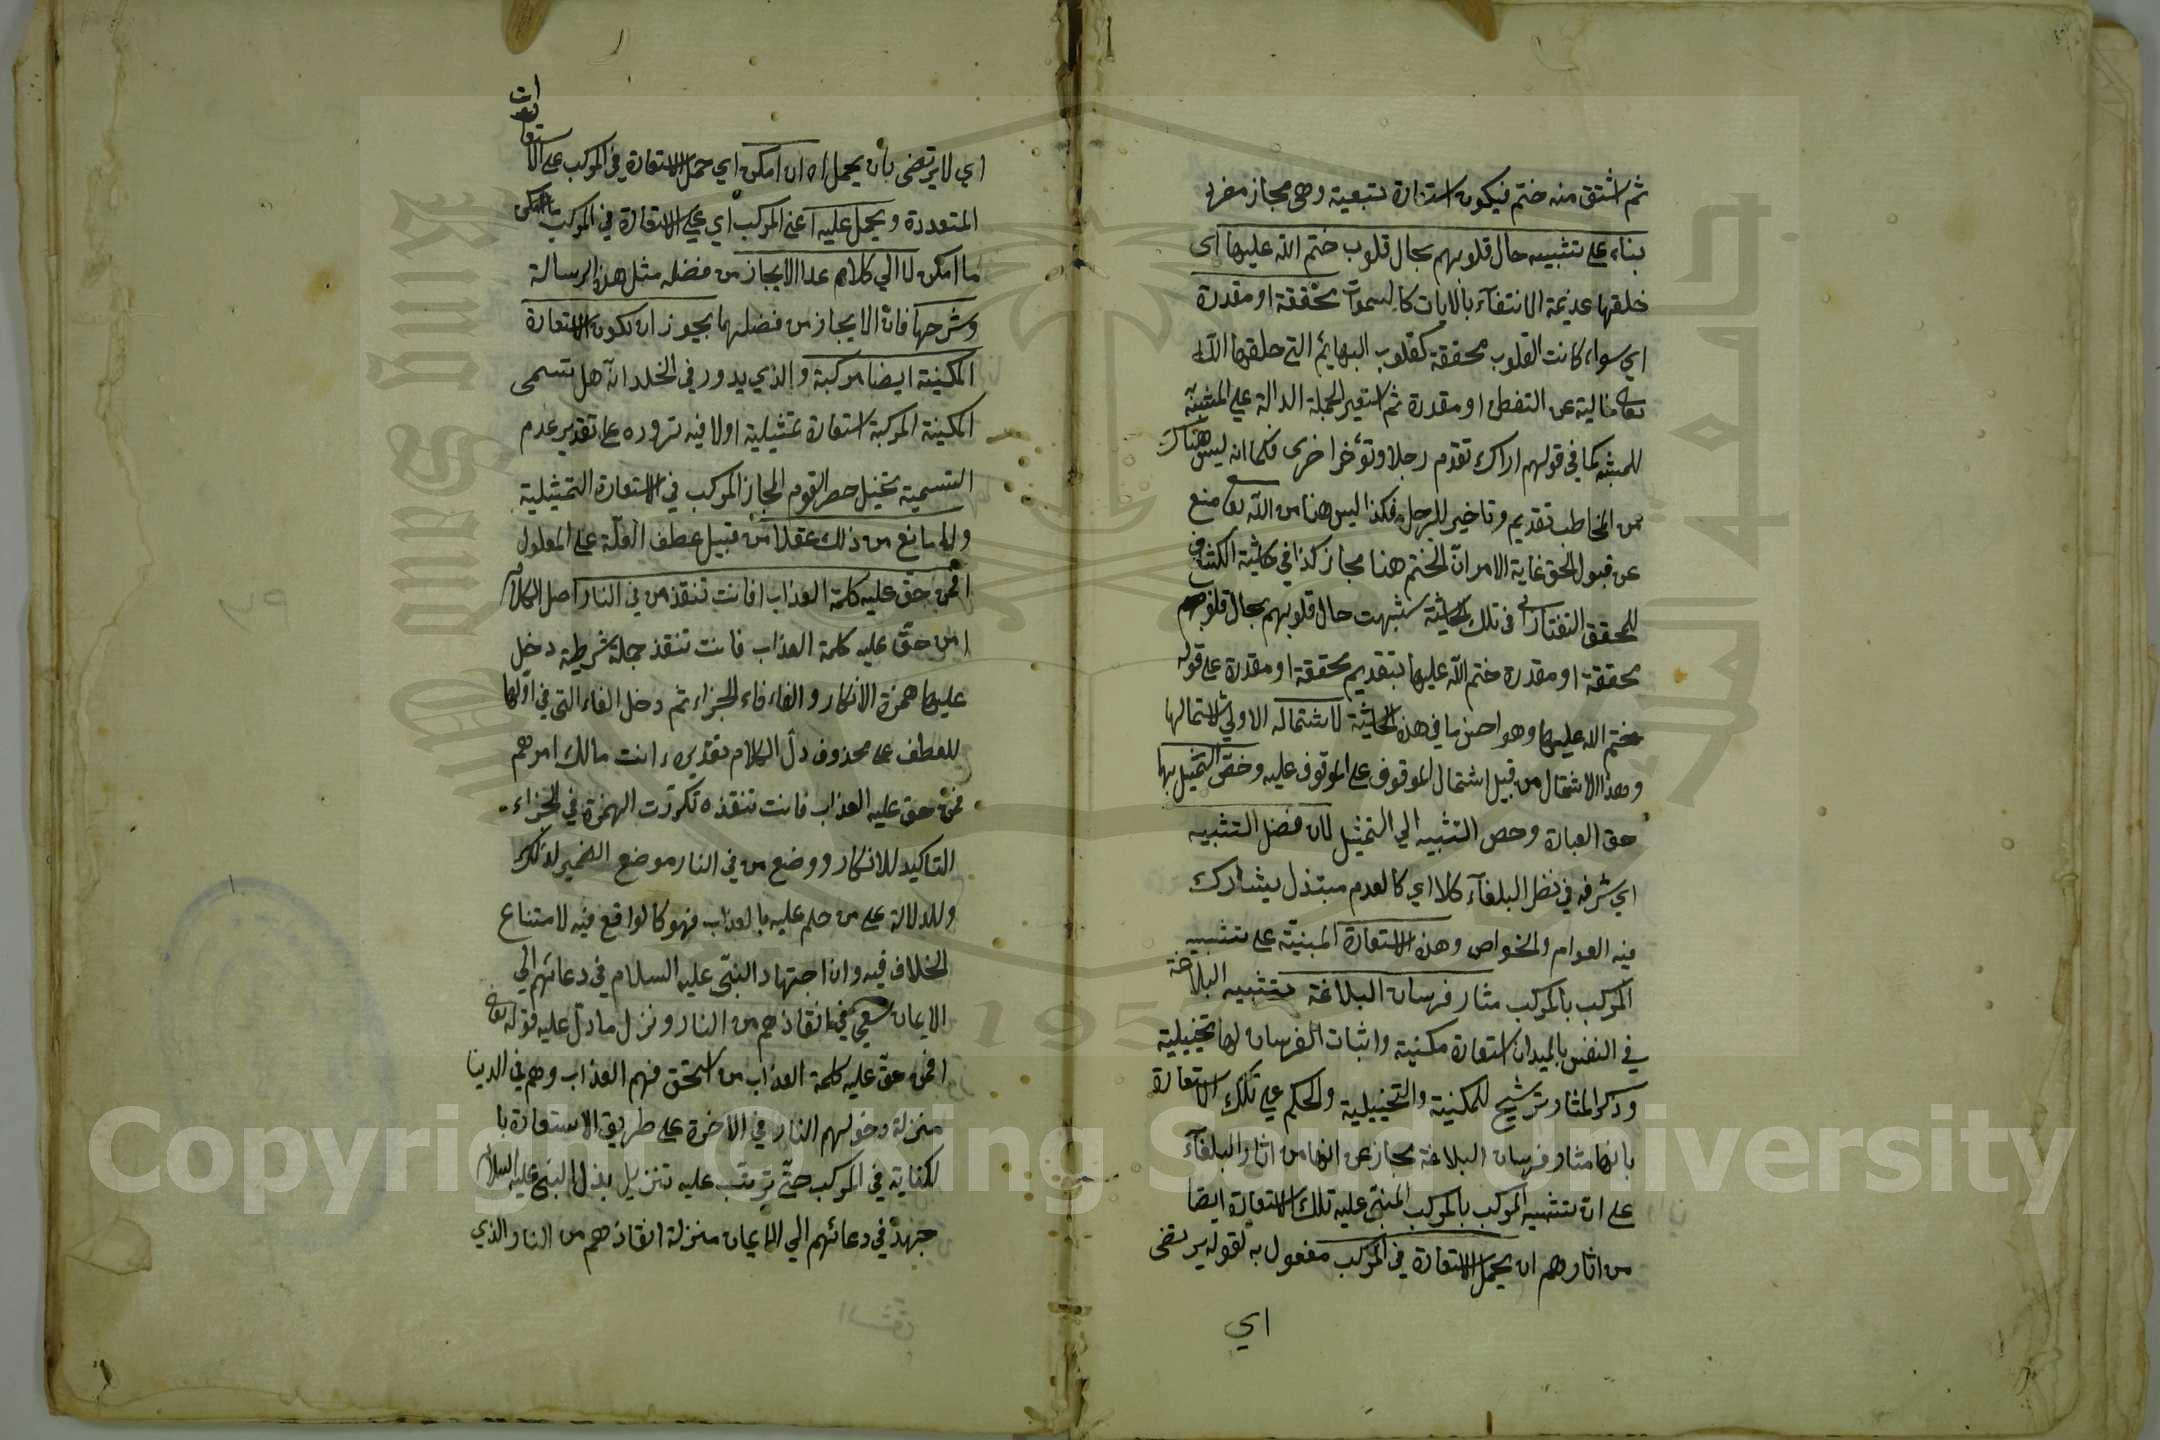 ثم اشتق منه ختم فيكون استعارة تبعية وهى مجاز مفرد
بناء على تشبيه حال قلوبهم بحال قلوب ختم الله عليها اى
خلقها عديمة الانتفاء بالايات كالسموات محققة او مقدرة
اي سواء كانت القلوب محققة كقلوب البهائم التي خلقها الله
تعالى خالية عن التفطن او مقدرة ثم استعير الجملة الدالة علي المشبه به
للمشبه كما في قولهم اراك تقدم رجلا وتؤخر اخرى فكما انه ليس هناك
من المخاطب تقديم وتاخير للرجل فكذا ليس هنا من الله تعالى منع
عن قبول الحق غاية الامر ان الختم هنا مجاز كذا في حاشية الكشاف
للمحقق التفتازاني في تلك الحاشية شبهت حال قلوبهم بحال قلوب
محققة او مقدرة ختم الله عليها بتقديم محققة او مقدرة على قوله
ختم الله عليها وهو احسن ما في هذه الحاشية لاشتماله الاولي لاشتمالها
وهذا الاشتمال من قبيل اشتمال الموقوف على الموقوف عليه وخص التمثيل بها
حق العبارة وخص التشبيه الي التمثيل لان فضل التشبيه
اي شرفه في نظر البلغآء كلا اي كالعدم مبتذل يشارك
فيه العوام والخواص وهذه الاستعارة المبنية على تشبيه
المركب بالمركب مثار فرسان البلاغة بتشبيه البلاغة
في النفس بالميدان استعارة مكنية واثبات الفرسان لها تخييلية
وذكر المثار ترشيح للمكنية والتخييلية والحكم علي تلك الاستعارة
بانها مثار فرسان البلاغة مجاز عن انها من اثار البلغآء
على ان تشبيه المركب بالمركب المبني عليه تلك الاستعارة ايضا
من اثارهم ان يحمل الاستعارة في المركب مفعول به لقوله يرتضى
اي
اي لا يرتضى بان يحمل اه ان امكن اي حمل الاستعارة في المركب على الاستعارات
المتعددة ويحمل عليه اعني المركب اي علي الاستعارة في المركب
ما امكن لا الي كلام عدا الايجاز من فضله مثل هذه الرسالة
وشرحها فان الايجاز من فضلهما يجوز ان تكون الاستعارة
المكنية ايضا مركبة والذي يدور في الخلد انه هل تسمى
المكنية المركبة استعارة تمثيلية اولا فيه تردد على تقدير عدم
التسمية يختل حصر القوم المجاز المركب في الاستعارة التمثيلية
ولا مانع من ذلك عقلا من قبيل عطف العلة على المعلول
افمن حق عليه كلمة العذاب افانت تنقذ من في النار اصل الكلام
امن حق عليه كلمة العذاب فانت تنقذ جملة شرطية دخل
عليها همزة الانكار والفاء فاء الجزاء ثم دخل الفاء التي في اولها
للعطف على محذوف دل الكلام تقديره ءانت مالك امرهم
فمن حق عليه العذاب فانت تنقذه تكررت الهمزة في الجزاء
لتاكيد الانكار ووضع من في النار موضع الضمير لذلك
وللدلالة على من حكم عليه بالعذاب فهو كالواقع فيه لامتناع
الخلاف فيه وان اجتهاد النبي عليه السلام في دعائهم الي
الايمان سعي في انقاذهم من النار ونزل ما دل عليه قوله تعالى
افمن حق عليه كلمة العذاب من استحق فهم العذاب وهم في الدنيا
منزلة دخولهم النار في الاخرة على طريق الاستعارة با
لكناية في المركب حتي يترتب عليه تنزيل بذل النبي عليه السلام
جهده في دعائهم الي الايمان منزلة انقاذهم من النار والذي
Copyright © King Saud University
1957